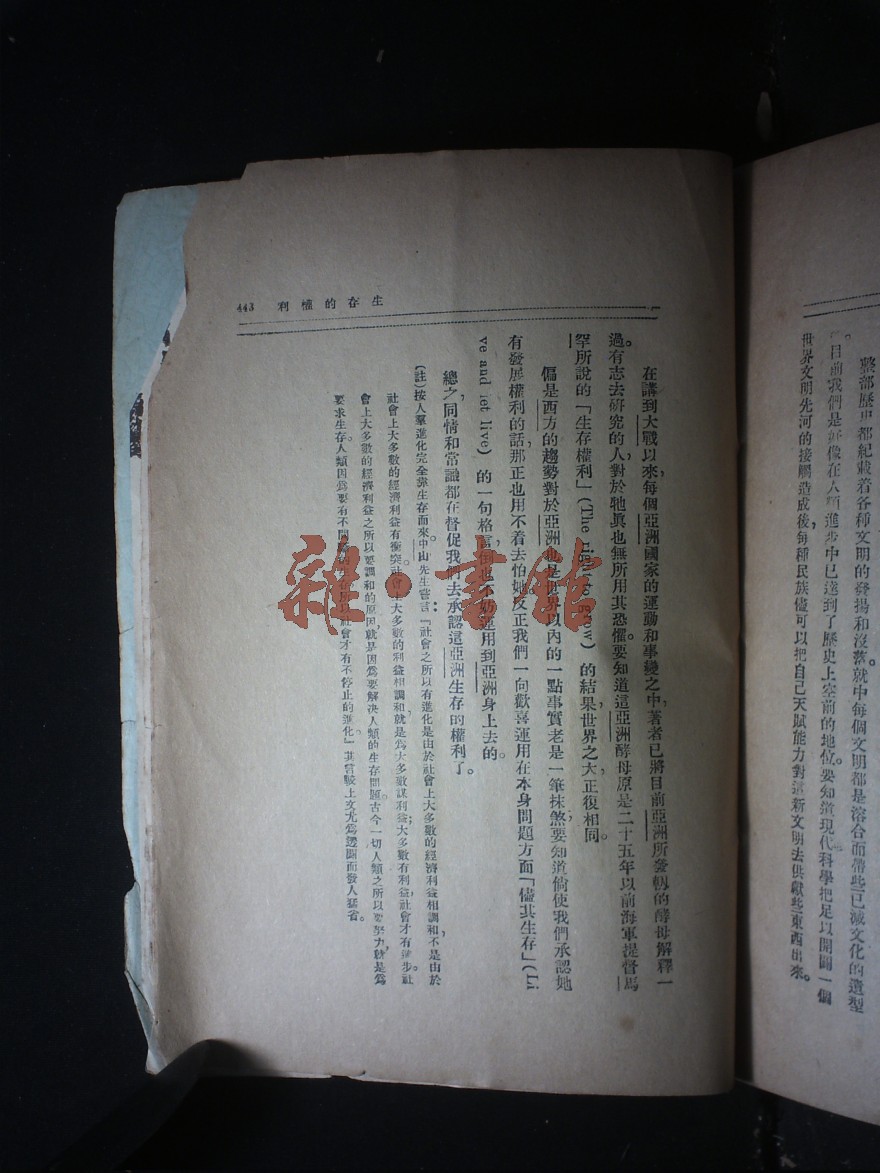 整部歷史都紀載着各種文明的發揚和沒落就中每個文明都是溶合而帶些已滅文化的遺型
。目前我們是好像在人類進步中已達到了歷史上空前的地位。要知道現代科學把足以開闢一個
世界文明先河的接觸造成後每種民族儘可以把自己天賦能力對這新文明去供獻些東西出來。
生存的權利 443
在講到大戰以來,每個亞洲國家的運動和事變之中,著者已將目前亞洲所發軔的酵母解釋一
過。有志去研究的人對於牠眞也無所用其恐懼。要知道這亞洲酵母原是二十五年以前海軍提督馬
罕所說的「生存權利」(The right to grow)的結果世界之大正復相同。
偏是西方的趨勢對於亞洲也是世界以內的一點事實老是一筆抹煞要知道倘使我們承認她
有發展權利的話,那正也用不着去怕她反正我們一向歡喜運用在本身問題方面「儘其生存」(Li
ve and let live)的一句格言倒也不妨運用到亞洲身上去的。
總之,同情和常識都在督促我們去承認這亞洲生存的權利了。
(註)按人羣進化完全靠生存而來。中山先生嘗言:「社會之所以有進化是由於社會上大多數的經濟利益相調和,不是由於
社會上大多數的經濟利益有衝突。社會上大多數的利益相調和,就是爲大多數謀利益;大多數有利益,社會才有進步。社
會上大多數的經濟利益之所以要調和的原因,就是因爲要解決人類的生存問題。古今一切人類之所以要努力,就是爲
要求生存。人類因爲要有不間斷的生存,所以社會才有不停止的進化。」其言較上文尤爲透闢而發人猛省。
雜·書館